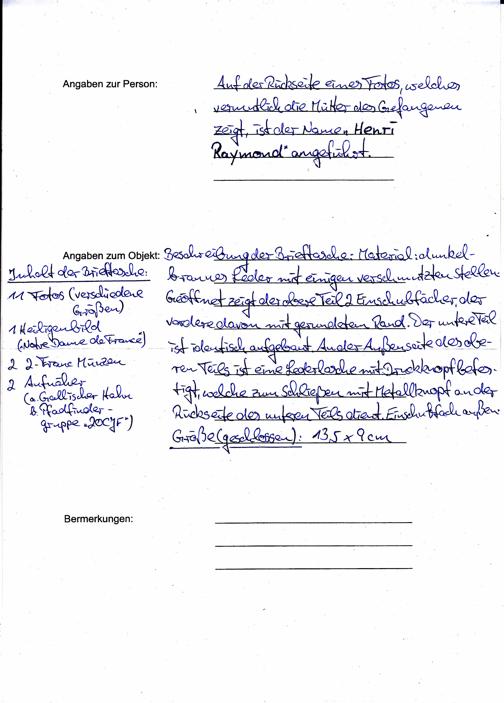 Angaben zur Person:
Auf der Rückseite eines Fotos, welches
vermutlich die Mutter des Gefangenen
zeigt, ist der Name „Henri
Raymond" angeführt.
Angaben zum Objekt: Beschreibung der Brieftasche: Material: dunkel-
braunes Leder mit einigen verschmutzten Stellen.
Geöffnet zeigt der obere Teil 2 Einschubfächer, der
vordere davon mit gerundeten Rand. Der untere Teil
ist identisch aufgebaut. An der Außenseite des obe-
ren Teils ist eine Lederlasche mit Druckknopf befes-
tigt, welche zum Schließen mit Metallknopf an der
Rückseite des unteren Teils dient. Einschubfach außen.
Größe (geschlossen): 13,5 x 9 cm
Inhalt der Brieftasche:
11 Fotos (verschiedene
Größen)
1 Heiligenbild
(Notre Dame de France)
2 2-Franc Münzen
2 Aufnäher
(a. Gallischer Hahn
b. Pfadfinder-
gruppe „20CJF")
Bermerkungen: